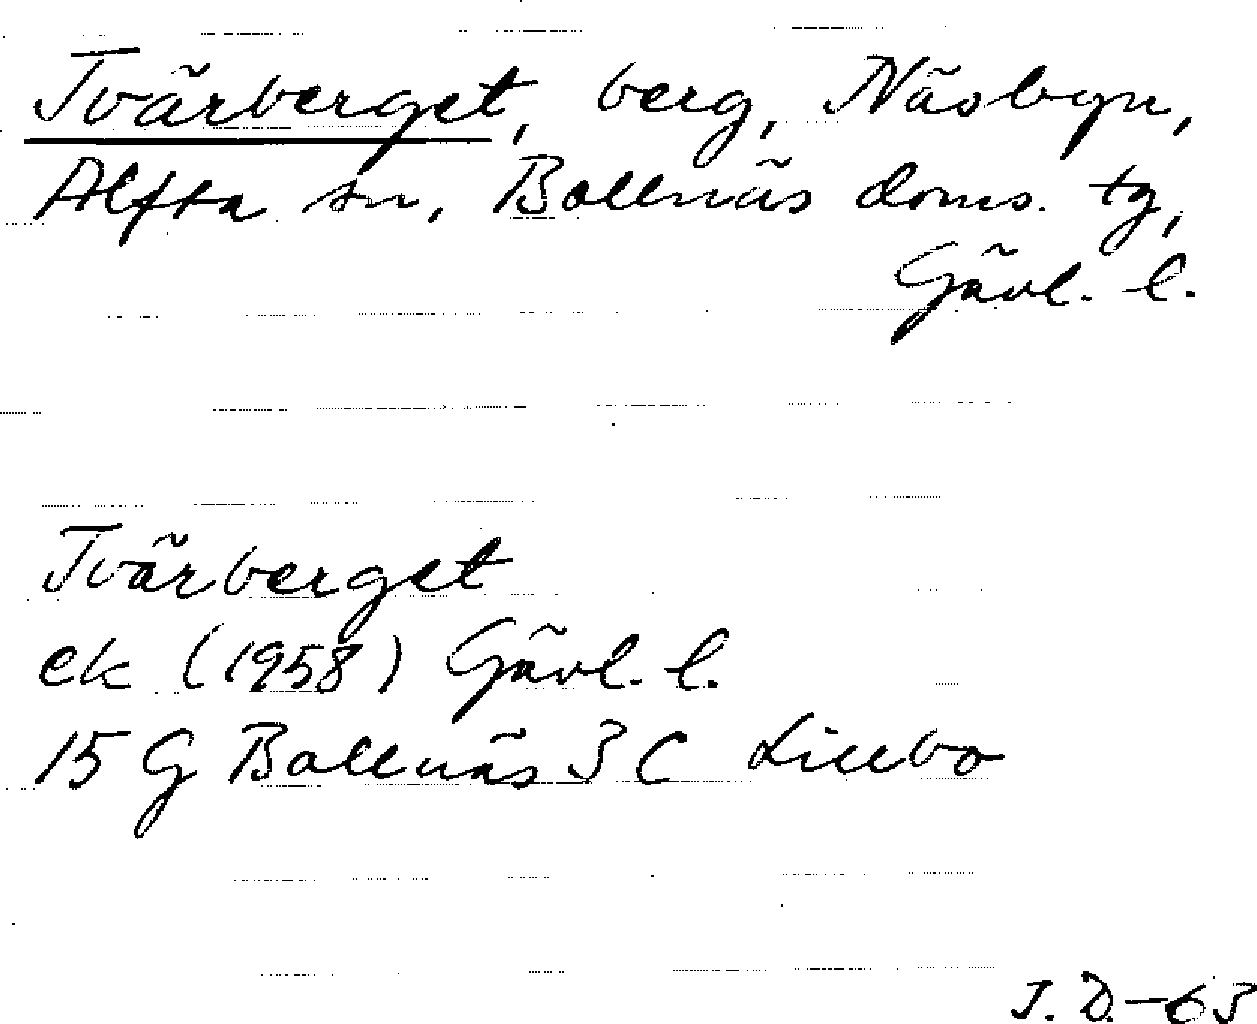 Tvärberget, berg, Näsbyn,
Alfta sn, Bollnäs doms. tg,
Gävl. l.
Tvärberget
ek (1958) Gävl. l.
15 G Bollnäs 3 C Lillbo
J. D. -63